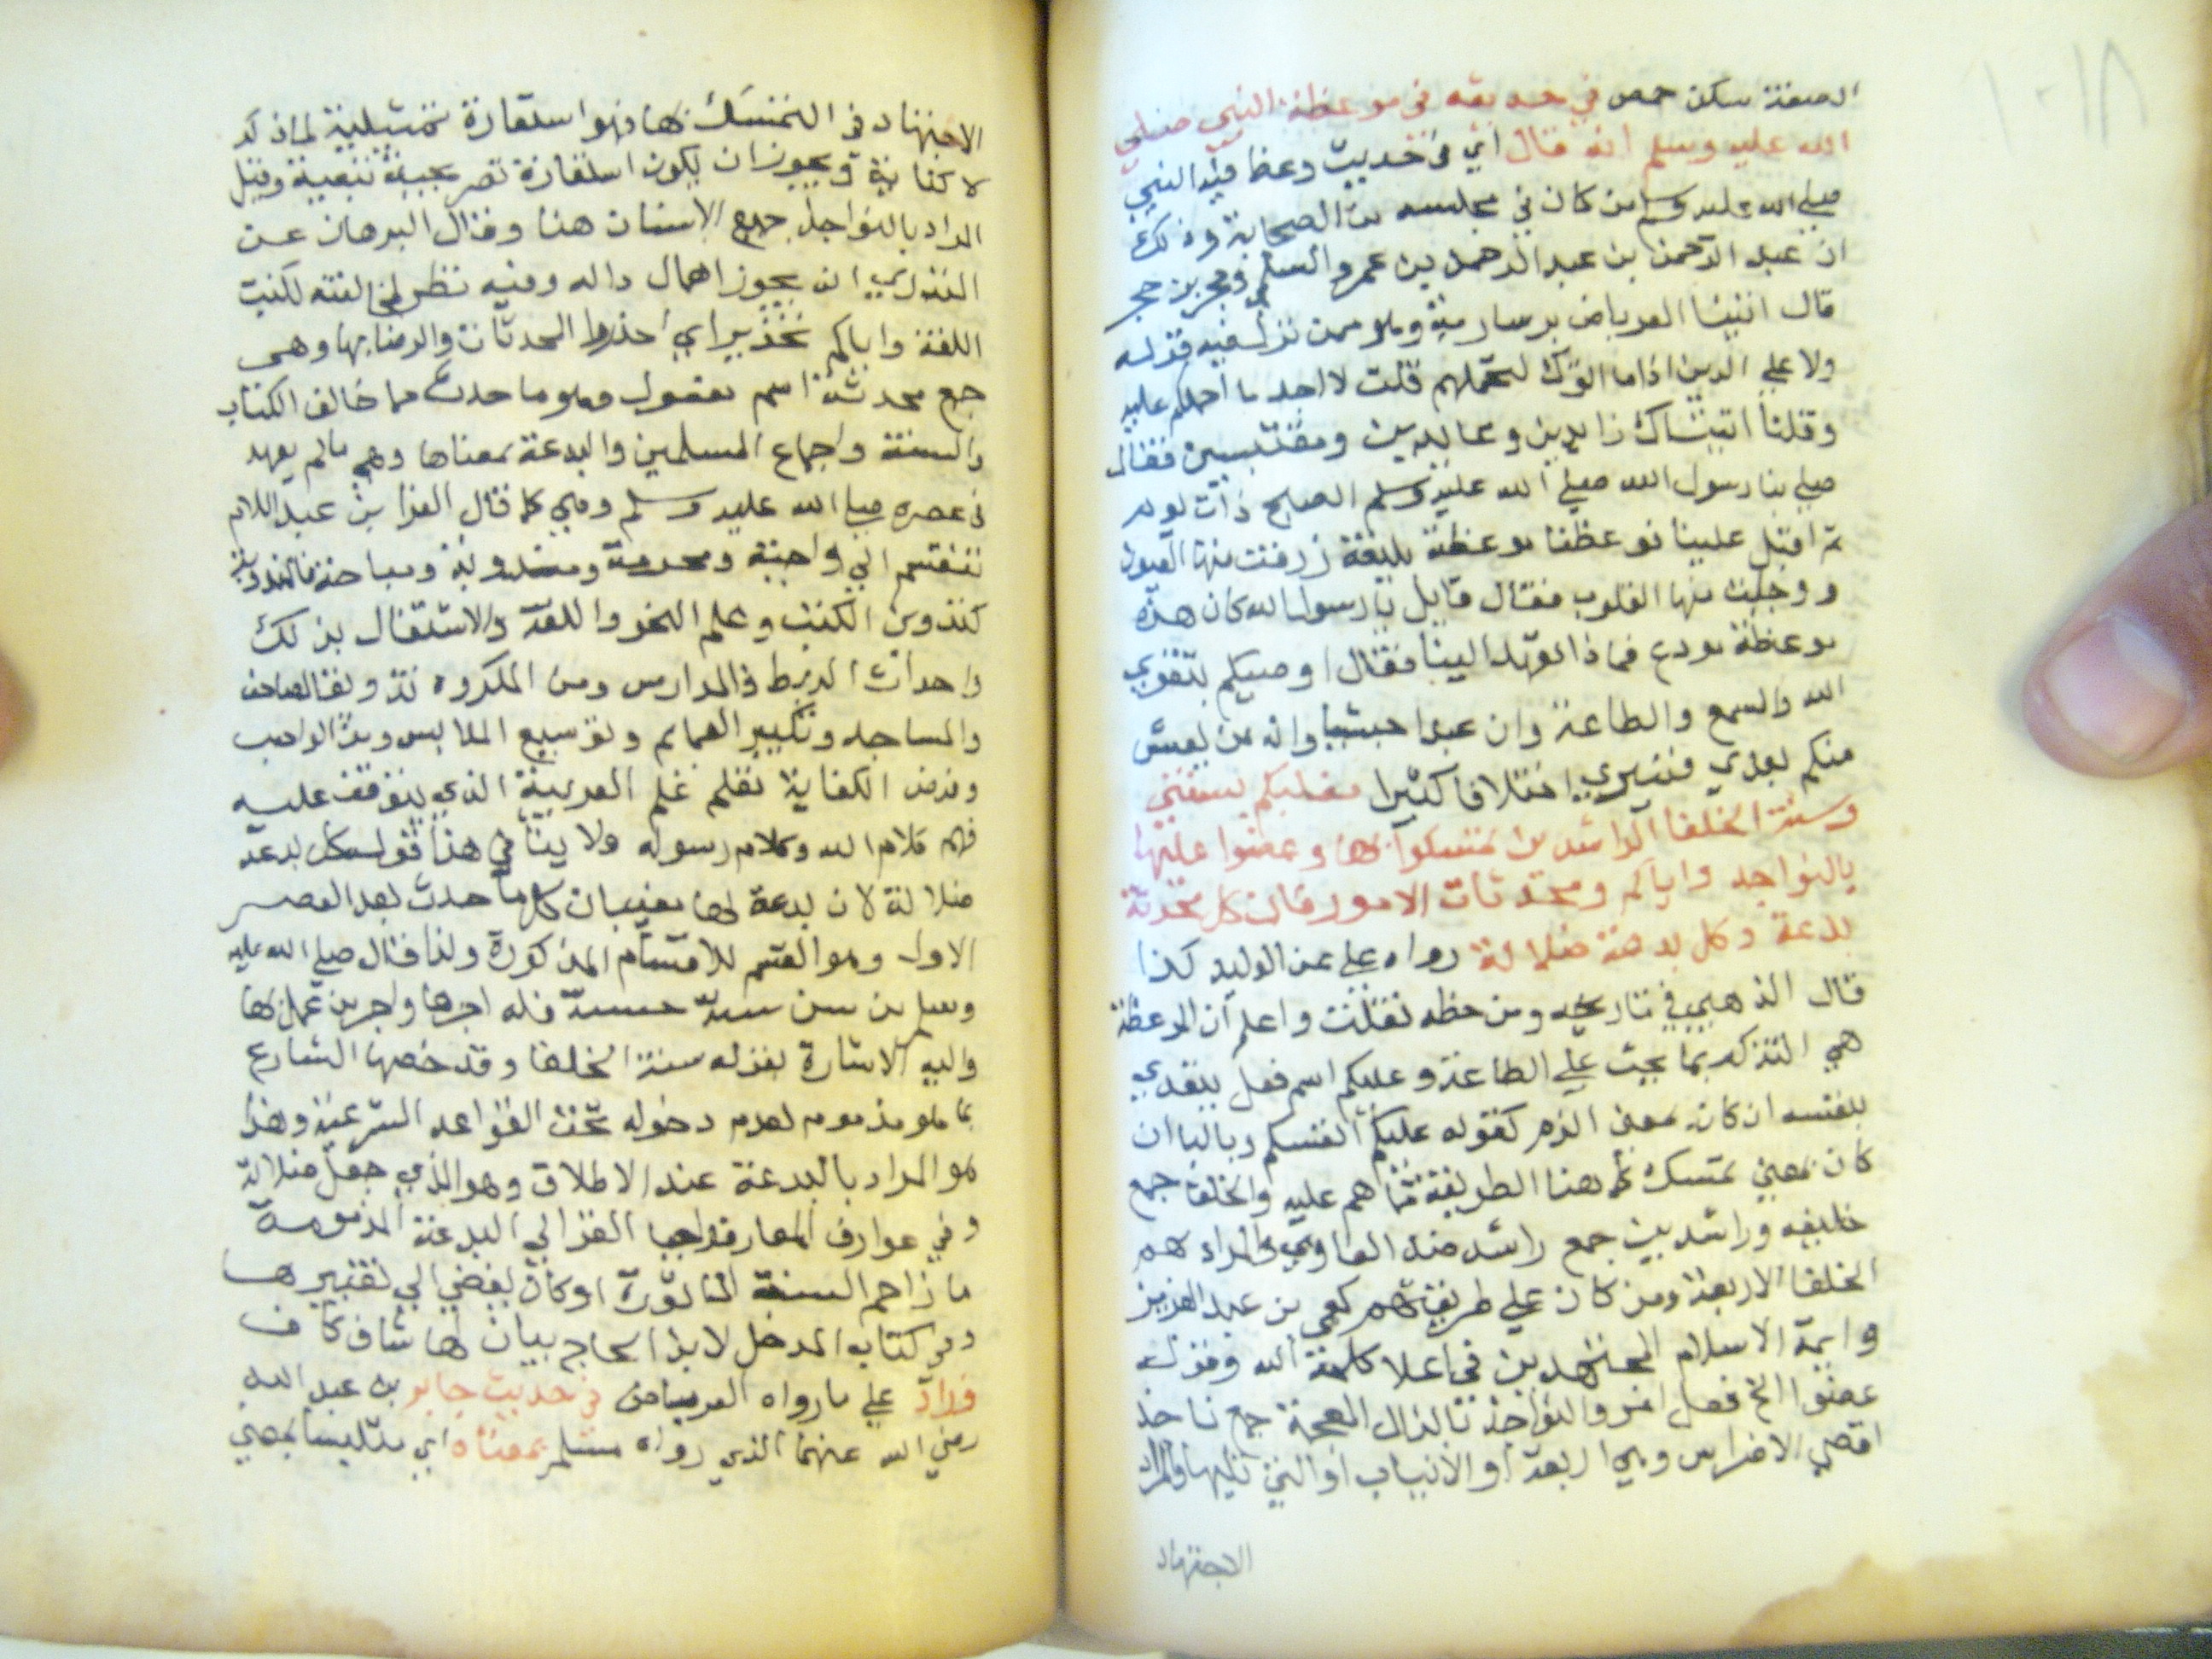 الصفة سكن حمص في حديثه في موعظة النبي صلى
الله عليه وسلم انه قال اي في حديث وعظ فيه النبي
صلي الله عليه وسلم من كان في مجلسه من الصحابة وذلك
ان عبد الرحمن بن عبد الرحمن بن عمرو السلمي وحجر بن حجر
قال اتينا العرباض بن سارية وهو ممن نزل فيه قوله
ولا علي الذين اذا ما اتوك لتحملهم قلت لا اجد ما احملكم عليه
وقلنا اتيناك زايرين وعايدين ومقتبسين فقال
صلي بنا رسول الله صلي الله عليه وسلم الصبح ذات يوم
ثم اقبل علينا فوعظنا موعظة بليغة زرفت منها العيون
ووجلت منها القلوب فقال قايل يا رسول الله كان هذه
موعظة مودع فماذا تعهد الينا فقال اوصيكم بتقوي
الله والسمع والطاعة وان عبدا حبشيا وانه من يعيش
منكم بعدي فسيري اختلافا كثيرا فعليكم بسنتي
وسنة الخلفا الراشدين تمسكوا بها وعضوا عليها
بالنواجد واياكم ومحدثات الامور فان كل محدثة
بدعة وكل بدعة ضلالة رواه علي عن الوليد كذا
قال الذهبي في تاريخه ومن خطه نقلت واعلم ان الموعظة
هي التذكر بما يحث علي الطاعة وعليكم اسم فعل يتعدي
بنفسه ان كان بمعني الزم كقوله عليكم انفسكم وبالبا ان
كان بمعني تمسك كما هنا الطريقة مما هم عليه والخلفا جمع
خليفه وراشدين جمع راشد ضد الغاوي والمراد هم
الخلفا الاربعة ومن كان علي طريقتهم كعمر بن عبد العزيز
وايمة الاسلام المجتهدين في اعلا كلمة الله وقوله
عضوا الخ فعل امر والنواجذ بالذال المعجمة جمع ناجذ
اقصي الاضراس وهي اربعة او الانياب او التي تليها والمراد
الاجتهاد
الاجتهاد في التمسك بها فهو استعارة تمثيلية لما ذكر
لا كناية ويجوز ان يكون استعارة تصريحية تبعية وقيل
المراد بالنواجذ جميع الاسنان هنا وقال البرهان عن
انه يجوز اهمال داله وفيه نظر لمخالفته لكتب
اللغة واياكم تحذير اي احذروا المحدثات والرضا بها وهي
جمع محدثة اسم مفعول وهو ما حدث مما خالف الكتاب
والسنة واجماع المسلمين والبدعة بمعناها وهي ما لم يعهد
في عصره صلي الله عليه وسلم وهي كما قال العز ابن عبد السلام
تنقسم الي واجبة ومحرمة ومندوبة ومباحة فالمندوبة
كتدوين الكتب وعلم النحو واللغة والاشتغال بذلك
واحداث الربط والمدارس ومن المكروه تذويق المصاحف
والمساجد وتكبير العمايم وتوسيع الملابس ومن الواجب
وفرض الكفاية تعلم علم العربية الذي يتوقف عليه
فهم كلام الله وكلام رسوله ولا ينافي هذا قوله كل بدعة
ضلالة لان بدعة لها معنيان كل ما حدث بعد العصر
الاول وهو المقسم للاقسام المذكورة ولذا قال صلي الله عليه
وسلم من سن سنة حسنة فله اجرها واجر من عمل بها
واليه الاشارة بقوله سنة الخلفا وقد خصها الشارع
بما هو مذموم لعدم دخوله تحت القواعد الشرعية وهذا
هو المراد بالبدعة عند الاطلاق وهو الذي جعل ضلالة
وفي عوارف المعارف واحيا الغزالي البدعة المذمومة
ما زاحم السنة الماثورة او كان يفضي الي تغييرها
وفي كتاب المدخل لابن الحاج بيان لها شاف كاف
وزاد علي ما رواه العرباض في حديث جابر بن عبد الله
رضي الله عنهما الذي رواه مسلم بمعناه اي متلبسا بمعني